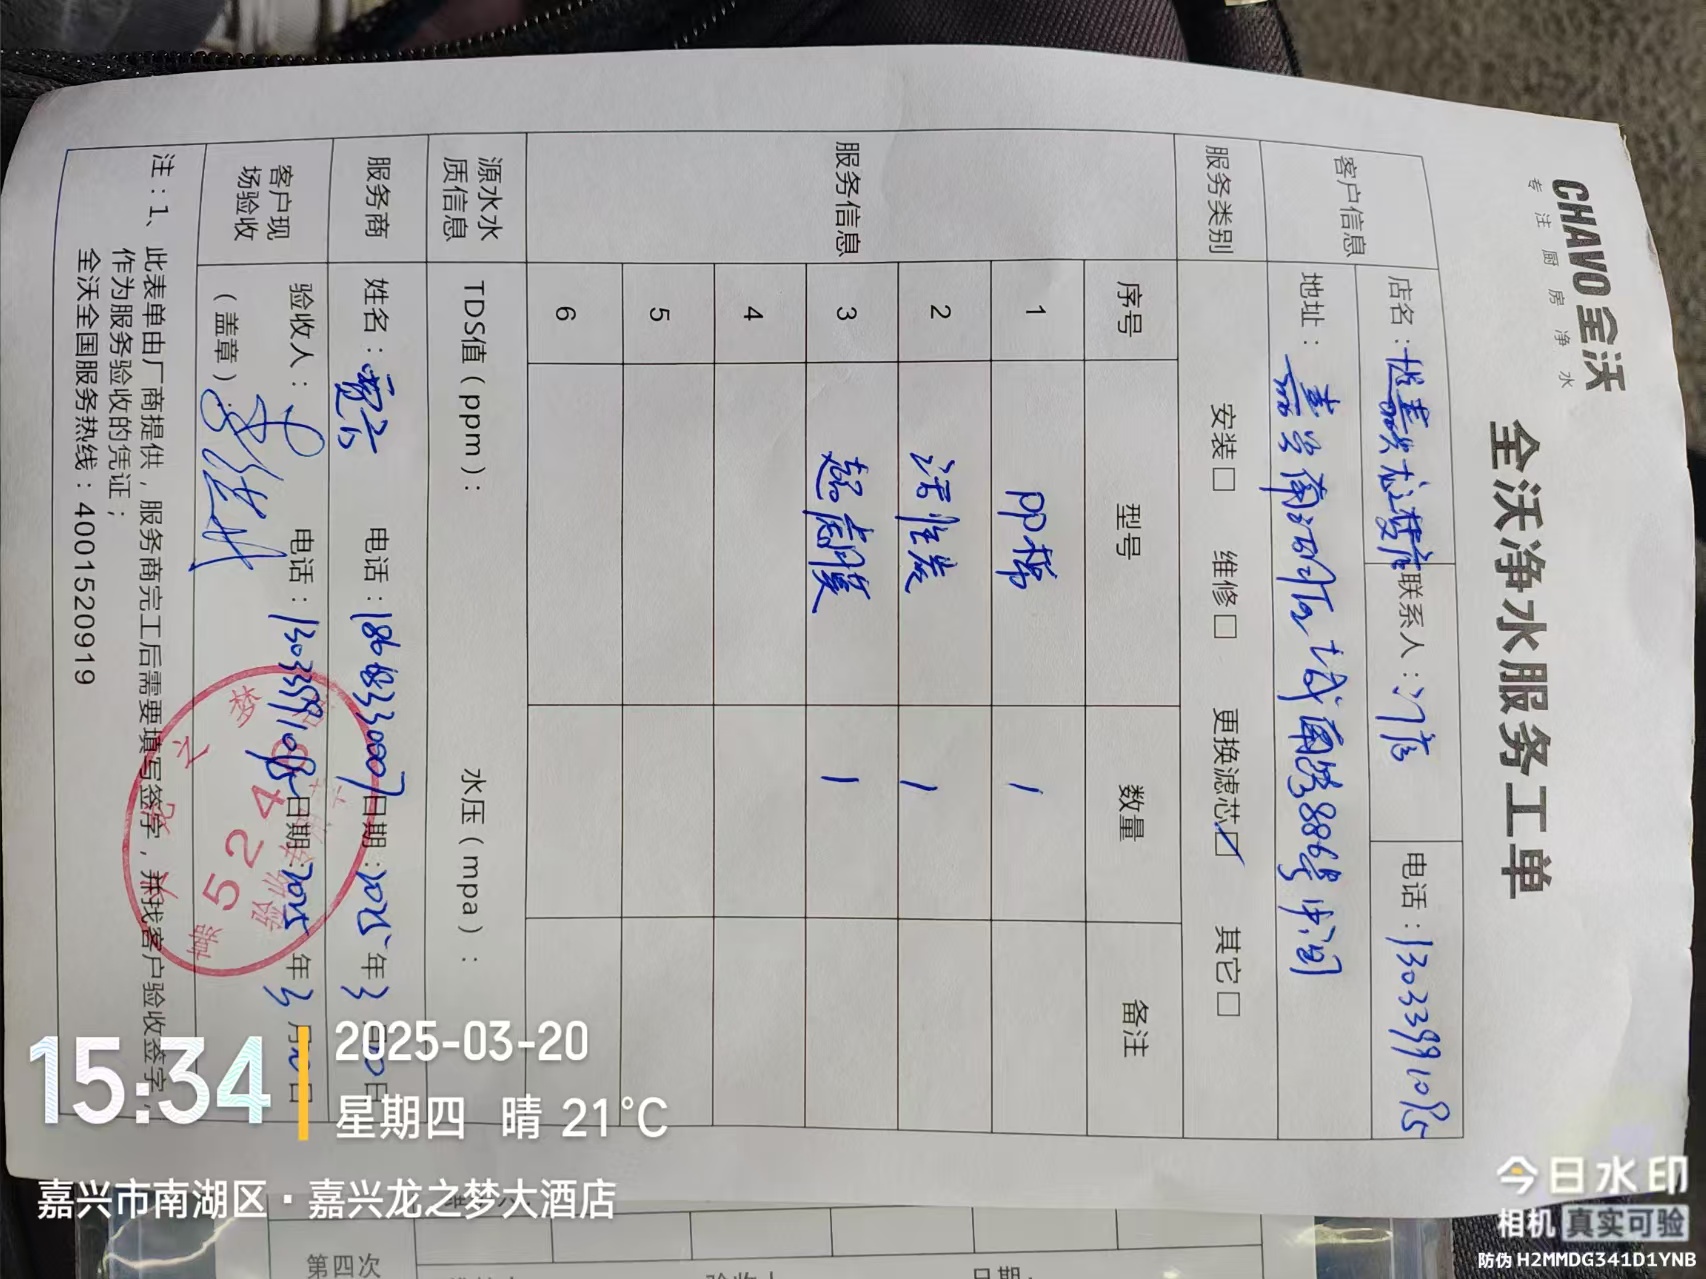 CHAVO 全沃
专注厨房净水
全沃净水服务工单
客户信息
店名: 联系人: 门店 电话: 13033991085
地址: 嘉兴南湖 886号中间
服务类别 安装□ 维修□ 更换滤芯☑ 其它□
服务信息
序号 型号 数量 备注
1 PP棉 1
2 活性炭 1
3 超滤膜 1
4
5
6
源水水质信息 TDS值(ppm): 水压(mpa):
服务商 姓名: 电话: 日期: 2025年3月20日
客户现场验收 验收人: 电话: 13033991085 日期: 2025年3月20日
(盖章)
之梦
524
注:1、此表单由厂商提供,服务商完工后需要填写签字,并找客户验收签字,
作为服务验收的凭证;
全沃全国服务热线:4001520919
15:34
2025-03-20
星期四 晴 21°C
嘉兴市南湖区·嘉兴龙之梦大酒店
第四次
验收人
日期:
今日水印
相机 真实可验
防伪 H2MMDG341D1YNB